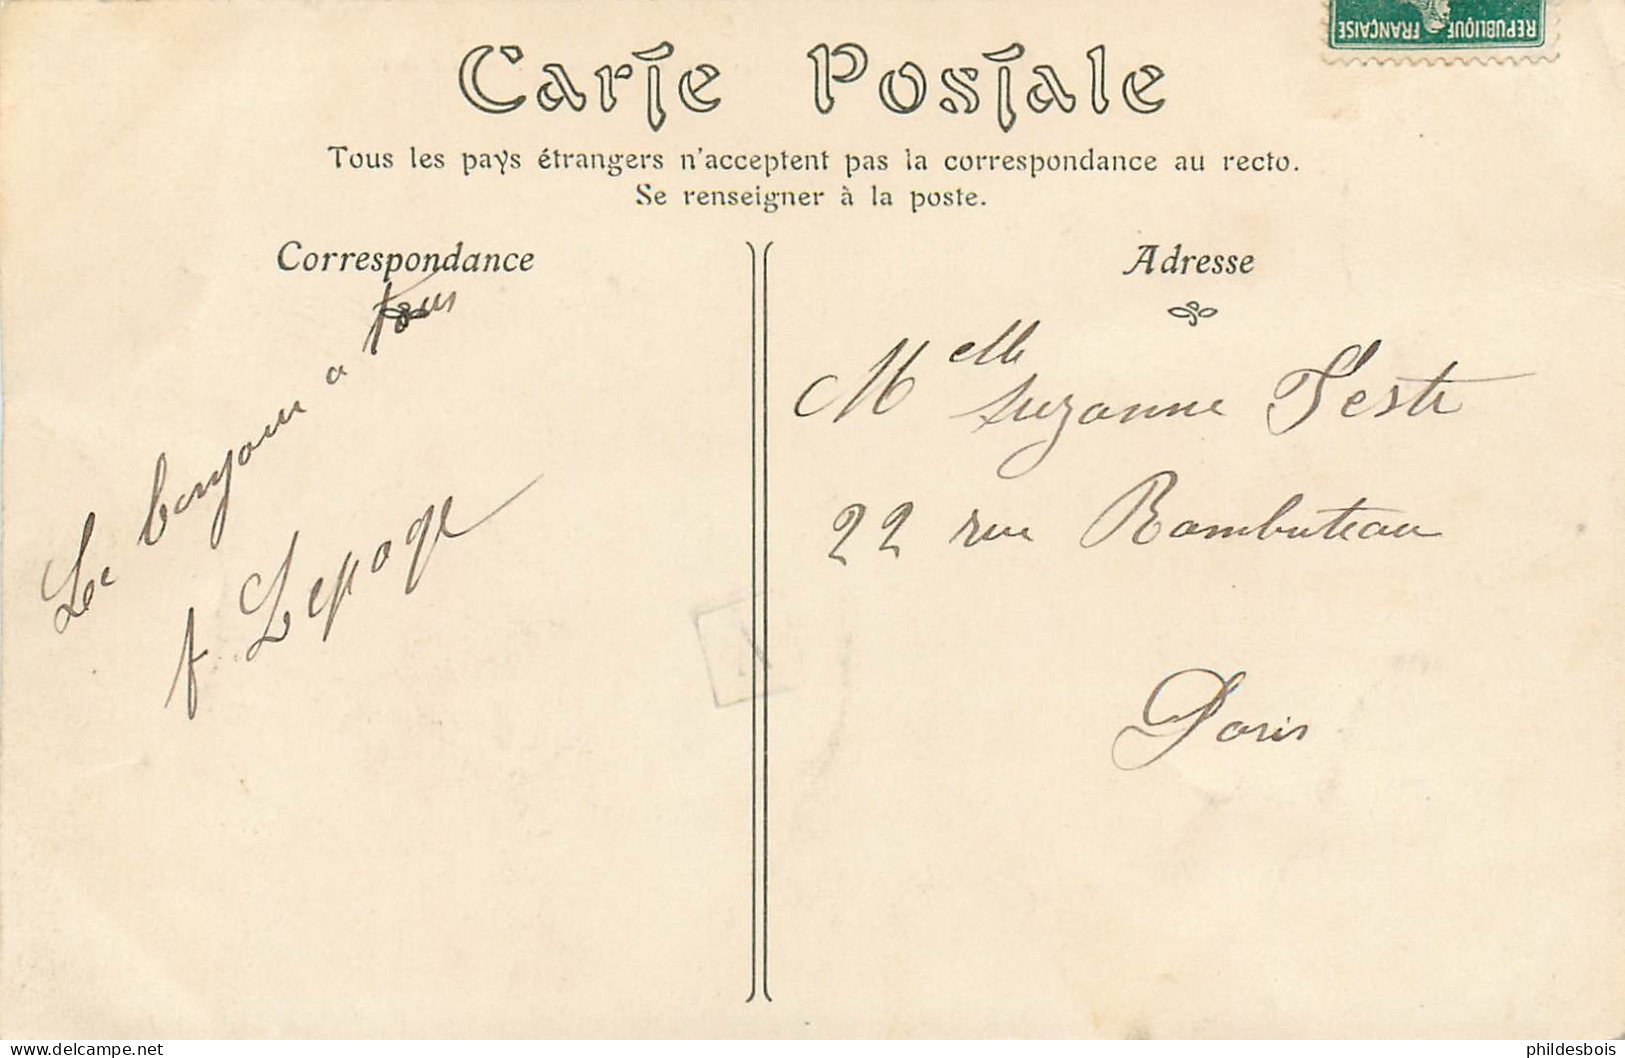 REPUBLIQUE FRANÇAISE
Carte Postale
Tous les pays étrangers n'acceptent pas la correspondance au recto.
Se renseigner à la poste.
Correspondance
Le bonjour a tous
f Lepage
Adresse
Melle Suzanne Teste
22 rue Rambuteau
Paris
A
philidesbois